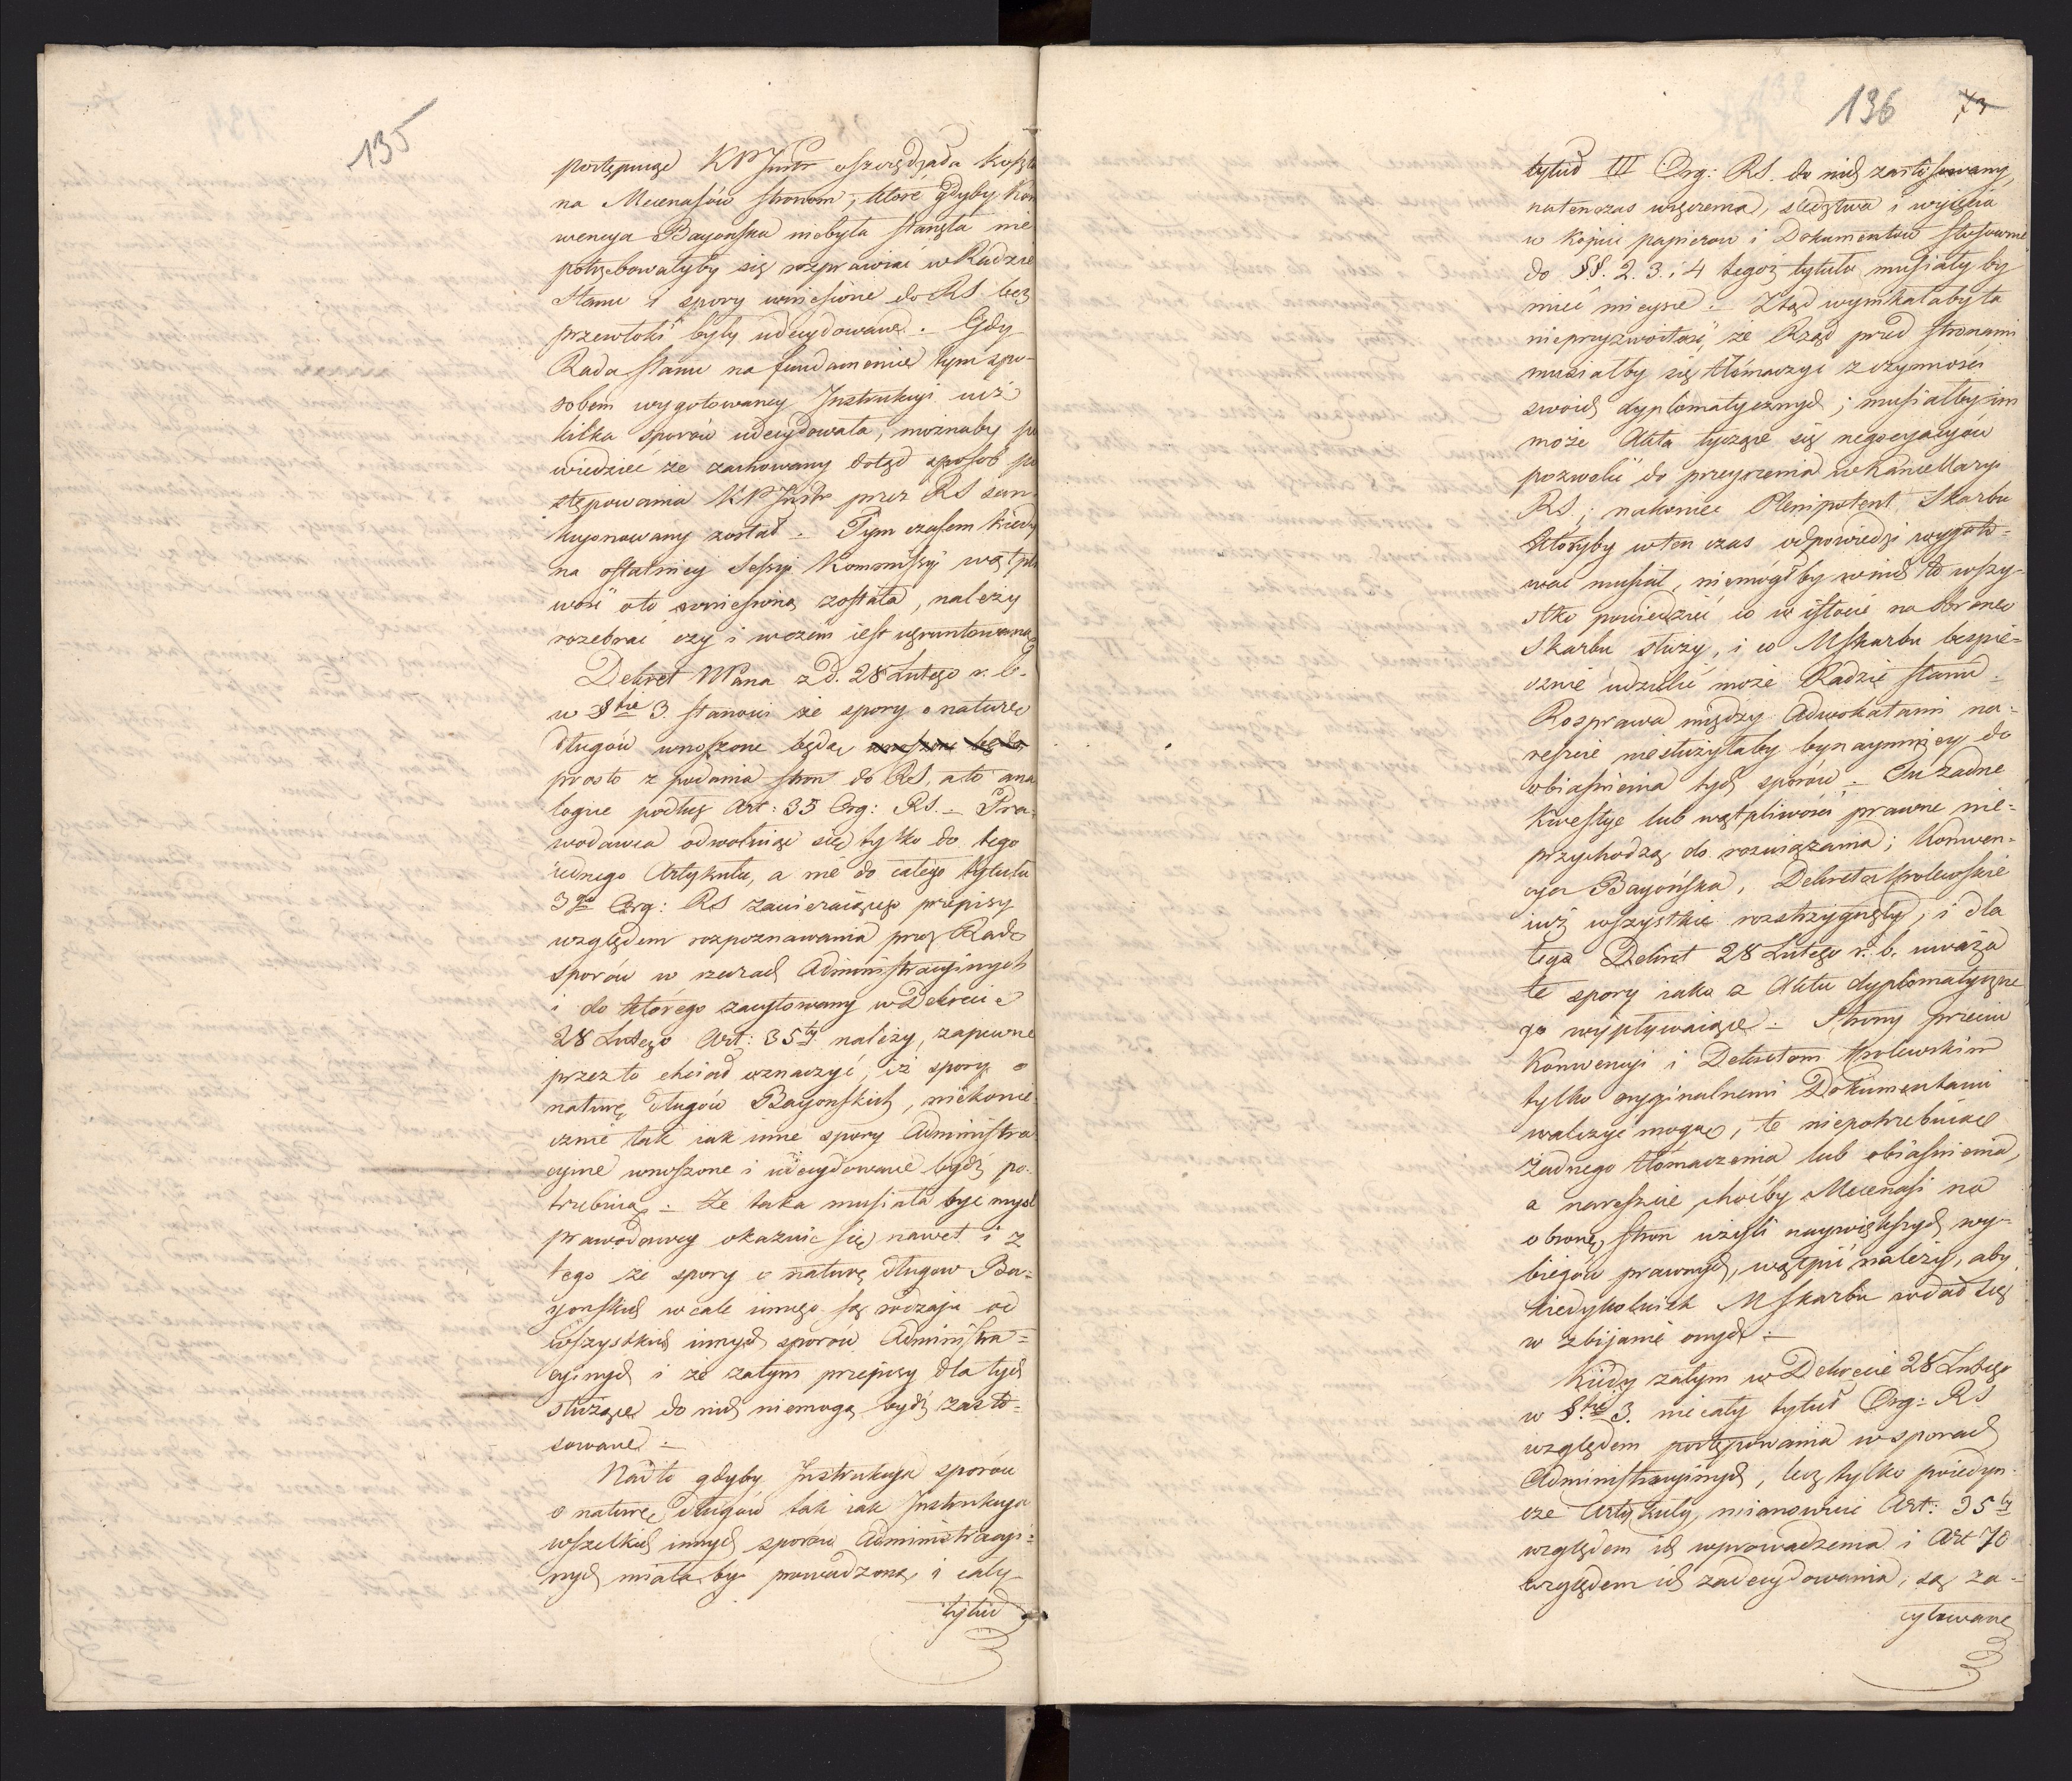 135
postępuiąc KPInstr oszczędzała koszta
na Mecenasów stronom, które gdyby Kon
wencya Bayońska niebyła stanęła nie
potrzebowałyby się rozprawiać w Radzie
Stanu i spory wniesione do RS. bez
przewłoki były udecydowane. Gdy
Rada Stanu na fundamencie tym spo-
sobem wygotowaney Instrukcyi już
kilka sporów udecydowała, możnaby po
wiedzieć że zachowany dotąd sposób po
stępowania KPInstr przez RS san
kcyonowany został. Tym czasem kiedy
na ostatniey Sessyi Kommissyi wątpli
wość oto wniesioną została, należy
rozebrać czy i w czém iest ugruntowaną
Dekret NPana z d. 28 Lutego r. b.
w §fie 3. stanowi że spory o naturę
długów wnoszone będą wnoszone będą
prosto z podania stron do RS, a to ana
logue podług Art: 35 Org: RS. Pra-
wodawca odwołuiąc się tylko do tego
iednego Artykułu, a nie do całego tytułu
3go Org: RS zawieraiącego przepisy
względem rozpoznawania przez Radę
sporów w rzeczach Administracyinych
i do którego zacytowany w Dekrecie
28 Lutego Art: 35ty należy, zapewne
przez to chciał oznaczyć, iż spory o
naturę długów Bayonskich, niekonie
cznie tak iak inne spory Administra
cyine wnoszone i udecydowane bydź po-
trzebuią. Że taka musiała być myśl
prawodawcy okazuie się nawet i z
tego że spory o naturę długow Ba-
yonskich wcale innego są rodzaju od
wszystkich innych sporów Administra-
cyinych i że zatym przepisy dla tych
służące do nich niemogą bydź zasto-
sowane.
Nadto gdyby Instrukcya sporów
o naturę długów tak iak Instrukcya
wszelkich innych sporów Administracyi-
nych miała by prowadzoną i cały
tytuł
136 73
tytuł III Org: RS. do nich zastosowany,
natenczas wręczenia, śledztwa i wyięcia
w kopii papierow i Dokumentow stosownie
do §§. 2. 3. i 4 tegoż tytułu musiały by
mieć mieysce. Ztąd wynikałaby ta
nieprzyzwoitość, że Rząd przed stronami
musiałby się tłómaczyć z czynności
swoich dyplomatycznych; musiałby im
może Akta tyczące się negocyacyów
pozwolić do przeyrzenia w Kancellaryi
RS; nakoniec Plenipotent Skarbu
któryby wten czas odpowiedzi wygoto-
wać musiał, niemógłby w nich to wszy-
stko powiedzieć co w istocie na obronę
Skarbu służy, i co MSkarbu bezpie-
cznie udzielić może Radzie Stanu.
Rosprawa między Adwokatami na-
reszcie niesłużyłaby bynaymniey do
obiaśnienia tych sporów. Tu żadne
kwestye lub wątpliwości prawne nie-
przychodzą do rozwiązania; Konwen-
cya Bayońska, Dekreta Krolewskie
iuż wszystkie rozstrzygnęły; i dla
tego Dekret 28 Lutego r. b. uważa
te spory iako z Aktu dyplomatyczne
go wypływaiące. Strony przeciw
Konwencyi i Dekretom Krolewskim
tylko oryginalnemi Dokumentami
walczyć mogą, te niepotrzebuią
żadnego tłómaczenia lub obiaśnienia,
a nareszcie choćby Mecenasi na
obronę stron użyli naywiększych wy-
biegów prawnych, wątpić należy, aby
kiedykolwiek MSkarbu wdał się
w zbijanie onych.
Kiedy zatym w Dekrecie 28 Lutego
w §fie 3. nie cały tytuł Org: RS
względem postępowania w sporach
Administracyinych, lecz tylko poiedyn
cze Artykuły, mianowicie Art: 35ty
względem ich wprowadzenia i Art 70
względem ich zadecydowania, są za-
cytowane